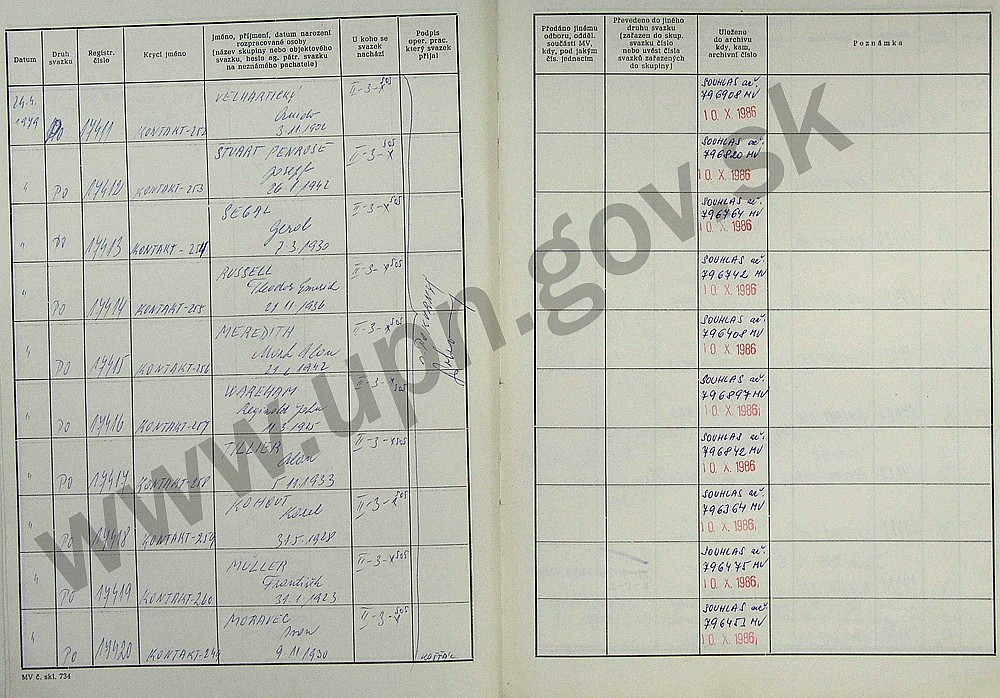 Datum
Druh svazku
Registr. číslo
Krycí jméno
Jméno, příjmení, datum narození
rozpracované osoby
(název skupiny nebo objektového
svazku, heslo ag. pátr. svazku
na neznámého pachatele)
U koho se
svazek
nachází
Podpis
oper. prac.
který svazek
přijal
Předáno jinému
odboru, odděl.
součásti MV,
kdy, pod jakým
čís. jednacím
Převedeno do jiného
druhu svazku
(zařazen do skup.
svazku číslo
nebo uvést čísla
svazků zařazených
do skupiny)
Uloženo
do archivu
kdy, kam,
archivní číslo
Poznámka
24.4.
1979 PO 17411 KONTAKT-252 VELHARTICKÝ
3.11.1902
II-3-X 505
SOUHLAS ač.
796908 MV
10. X. 1986
" PO 17412 KONTAKT-253 STUART PENROSE
Joseff
26.1.1942
II-3-X 505
SOUHLAS ač.
796820 MV
10. X. 1986
" PO 17413 KONTAKT-254 SEGAL
Gerob
2.3.1930
II-3-X 505
SOUHLAS ač.
796764 MV
10. X. 1986
" PO 17414 KONTAKT-255 RUSSELL
Theodor
21.11.1936
II-3-X 505
SOUHLAS ač.
796742 MV
10. X. 1986
" PO 17415 KONTAKT-256 MEREDITH
Alan
1942
II-3-X 505
SOUHLAS ač.
796408 MV
10. X. 1986
" PO 17416 KONTAKT-257 WAREHAM
Reginald John
3.1925
II-3-X 505
SOUHLAS ač.
796897 MV
10. X. 1986
" PO 17417 KONTAKT-258 TILLIER
Alan
11.1933
II-3-X 505
SOUHLAS ač.
796842 MV
10. X. 1986
" PO 17418 KONTAKT-259 KOHOUT
Karel
31.5.1928
II-3-X 505
SOUHLAS ač.
796364 MV
10. X. 1986
" PO 17419 KONTAKT-260 MÜLLER
František
31.1.1923
II-3-X 505
SOUHLAS ač.
796475 MV
10. X. 1986
" PO 17420 MORAVEC
Ivan
9.11.1930
II-3-X 505
KOŠŤÁL
SOUHLAS ač.
796451 MV
10. X. 1986
MV č. skl. 734
www.upn.gov.sk